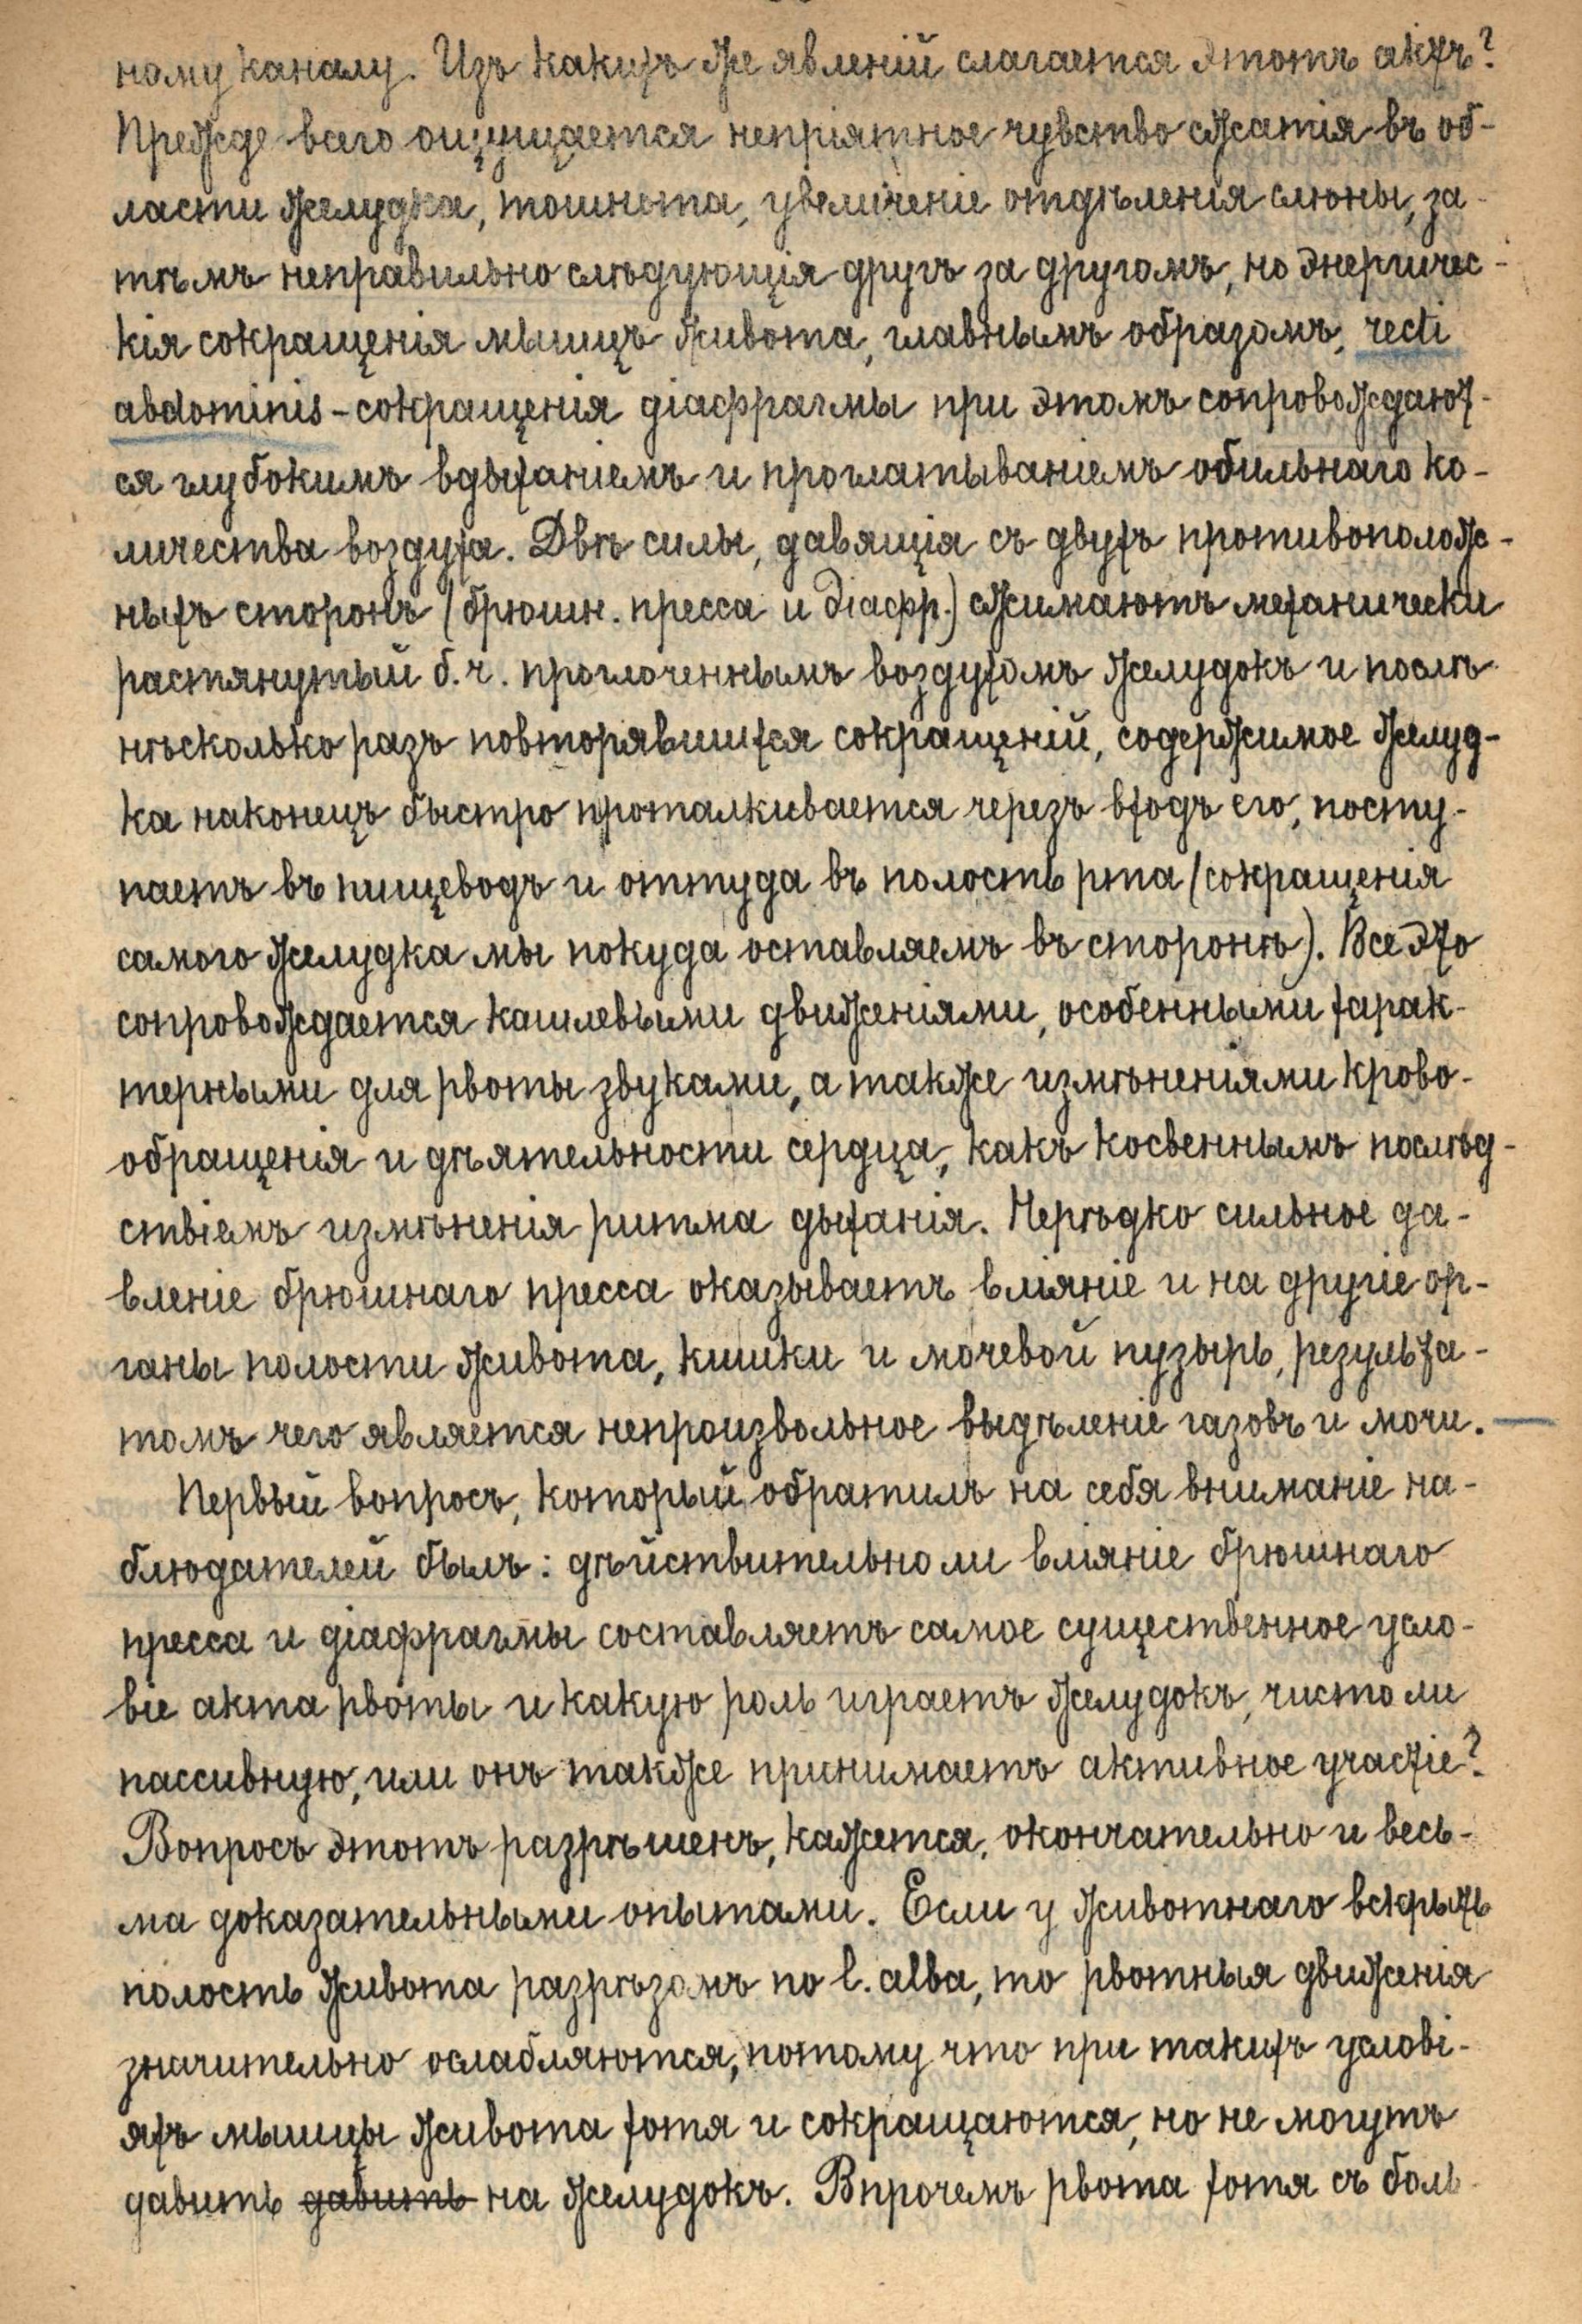 ному каналу. Изъ какихъ же явленій слагается этотъ актъ?
Прежде всего ощущается непріятное чувство сжатія въ об-
ласти желудка, тошнота, увеличеніе отдѣленія слюны, за-
тѣмъ неправильно слѣдующія другъ за другомъ, но энергичес-
кія сокращенія мышцъ живота, главнымъ образомъ, recti
abdominis - сокращенія діафрагмы при этомъ сопровождают-
ся глубокимъ вдыханіемъ и проглатываніемъ обильнаго ко-
личества воздуха. Двѣ силы, давящія съ двухъ противополож-
ныхъ сторонъ (брюшн. пресса и діафр.) сжимаютъ механически
растянутый б. ч. проглоченнымъ воздухомъ желудокъ и послѣ
нѣсколько разъ повторявшихся сокращеній, содержимое желуд-
ка наконецъ быстро проталкивается черезъ входъ его, посту-
паетъ въ пищеводъ и оттуда въ полость рта (сокращенія
самого желудка мы покуда оставляемъ въ сторонѣ). Все это
сопровождается кашлевыми движеніями, особенными харак-
терными для рвоты звуками, а также измѣненіями крово-
обращенія и дѣятельности сердца, какъ косвеннымъ послѣд-
ствіемъ измѣненія ритма дыханія. Нерѣдко сильное да-
вленіе брюшнаго пресса оказываетъ вліяніе и на другіе ор-
ганы полости живота, кишки и мочевой пузырь, результа-
томъ чего является непроизвольное выдѣленіе газовъ и мочи.
Первый вопросъ, который обратилъ на себя вниманіе на-
блюдателей былъ: дѣйствительно ли вліяніе брюшнаго
пресса и діафрагмы составляетъ самое существенное усло-
віе акта рвоты и какую роль играетъ желудокъ, чисто ли
пассивную, или онъ также принимаетъ активное участіе?
Вопросъ этотъ разрѣшенъ, кажется, окончательно и весь-
ма доказательными опытами. Если у животнаго вскрыть
полость живота разрѣзомъ по l. alba, то рвотныя движенія
значительно ослабляются, потому что при такихъ услові-
яхъ мышцы живота хотя и сокращаются, но не могутъ
давить давить на желудокъ. Впрочемъ рвота хотя съ боль-